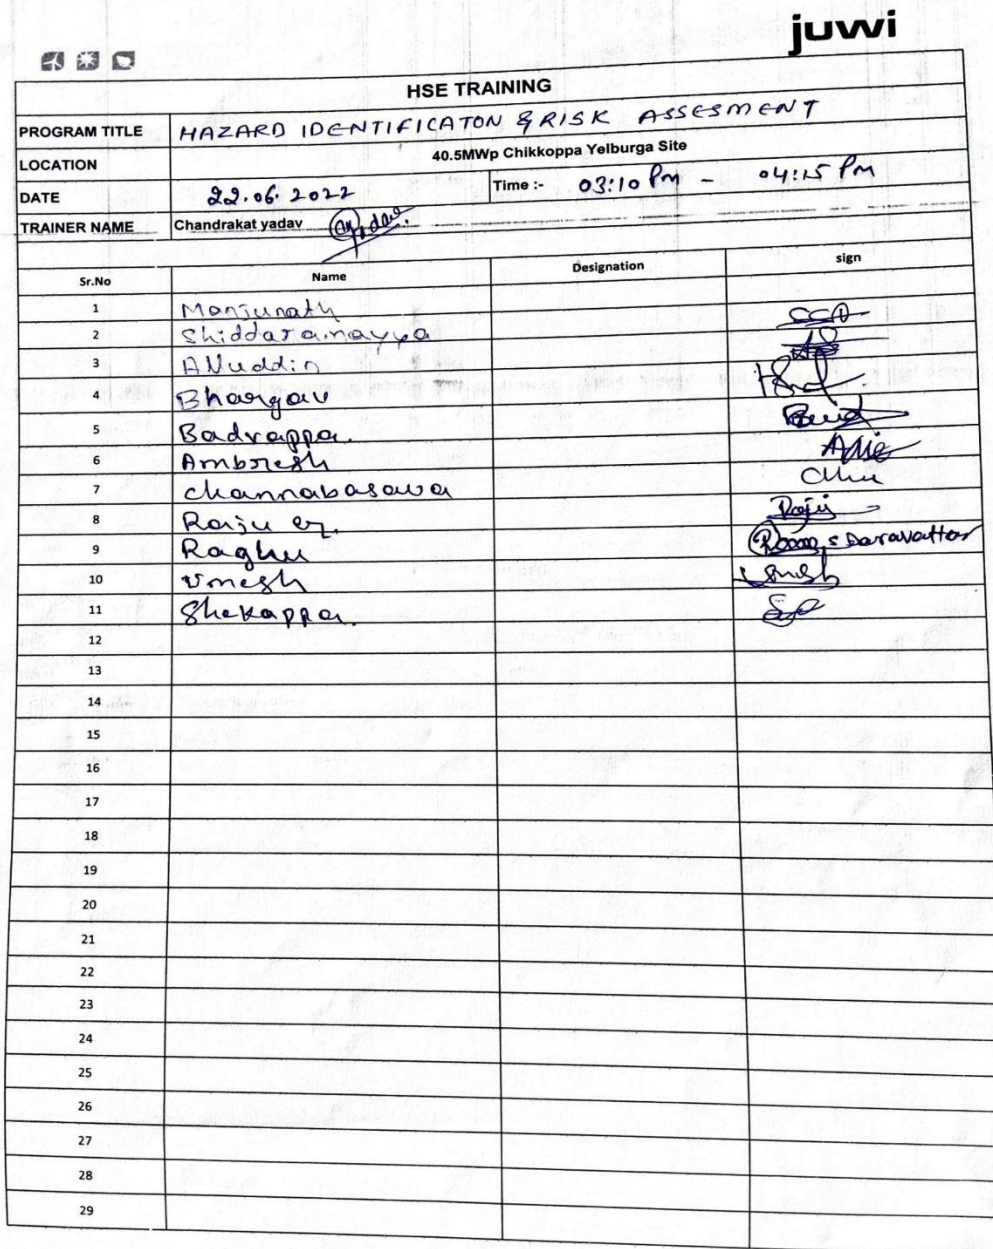 juwi
HSE TRAINING
PROGRAM TITLE HAZARD IDENTIFICATON & RISK ASSESMENT
LOCATION 40.5MWp Chikkoppa Yelburga Site
DATE 22.06.2022 Time :- 03:10 Pm - 04:15 Pm
TRAINER NAME Chandrakat yadav
Sr.No Name Designation sign
1 Manjunath
2 Shiddaramayya
3 Alluddin
4 Bhargav
5 Badrappa.
6 Ambresh
7 channabasava
8 Raju Raju
9 Raghu
10 Umesh
11 Shekappa.
12
13
14
15
16
17
18
19
20
21
22
23
24
25
26
27
28
29